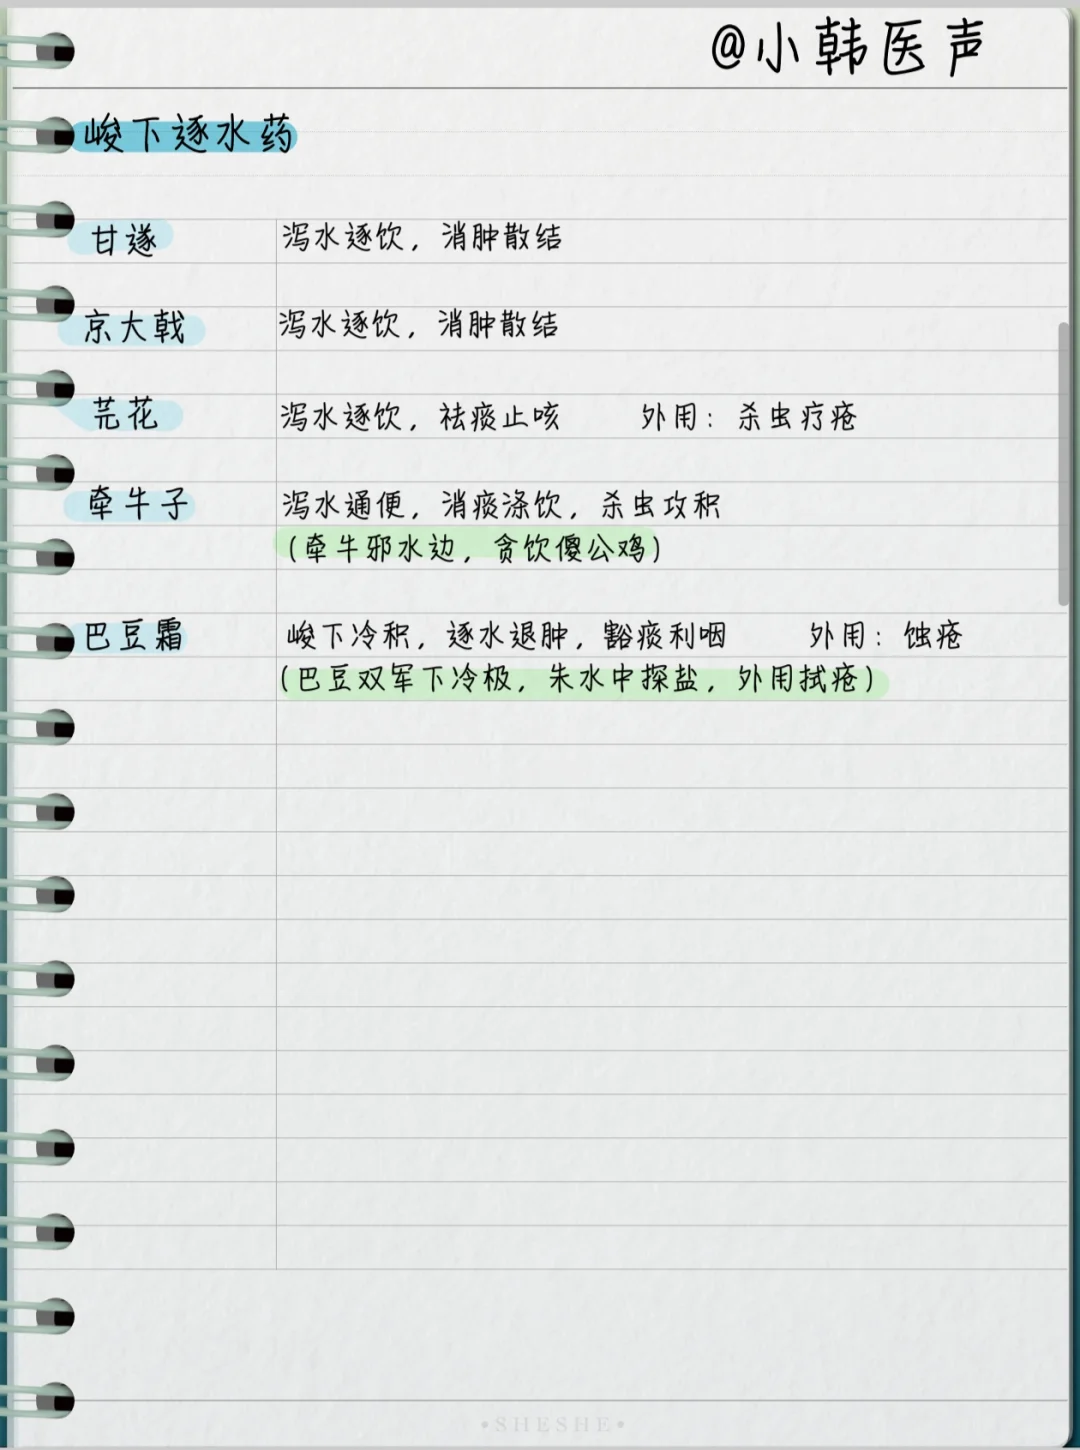 @小韩医声
峻下逐水药
甘遂 泻水逐饮，消肿散结
京大戟 泻水逐饮，消肿散结
芫花 泻水逐饮，祛痰止咳 外用：杀虫疗疮
牵牛子 泻水通便，消痰涤饮，杀虫攻积
（牵牛邪水边，贪饮傻公鸡）
巴豆霜 峻下冷积，逐水退肿，豁痰利咽 外用：蚀疮
（巴豆双军下冷极，朱水中探盐，外用拭疮）
•SHESHE•